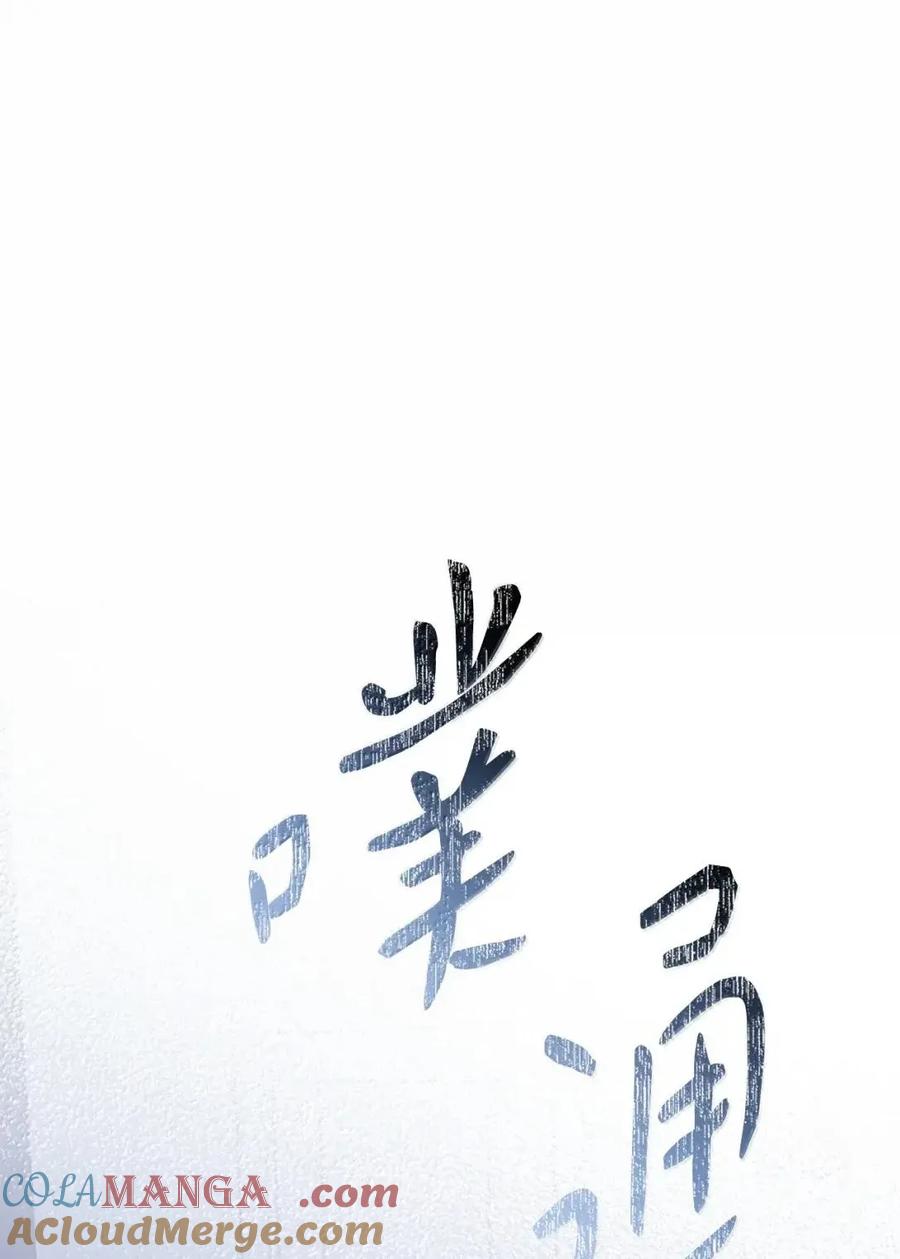 噗通
COLAMANGA.com
ACloudMerge.com